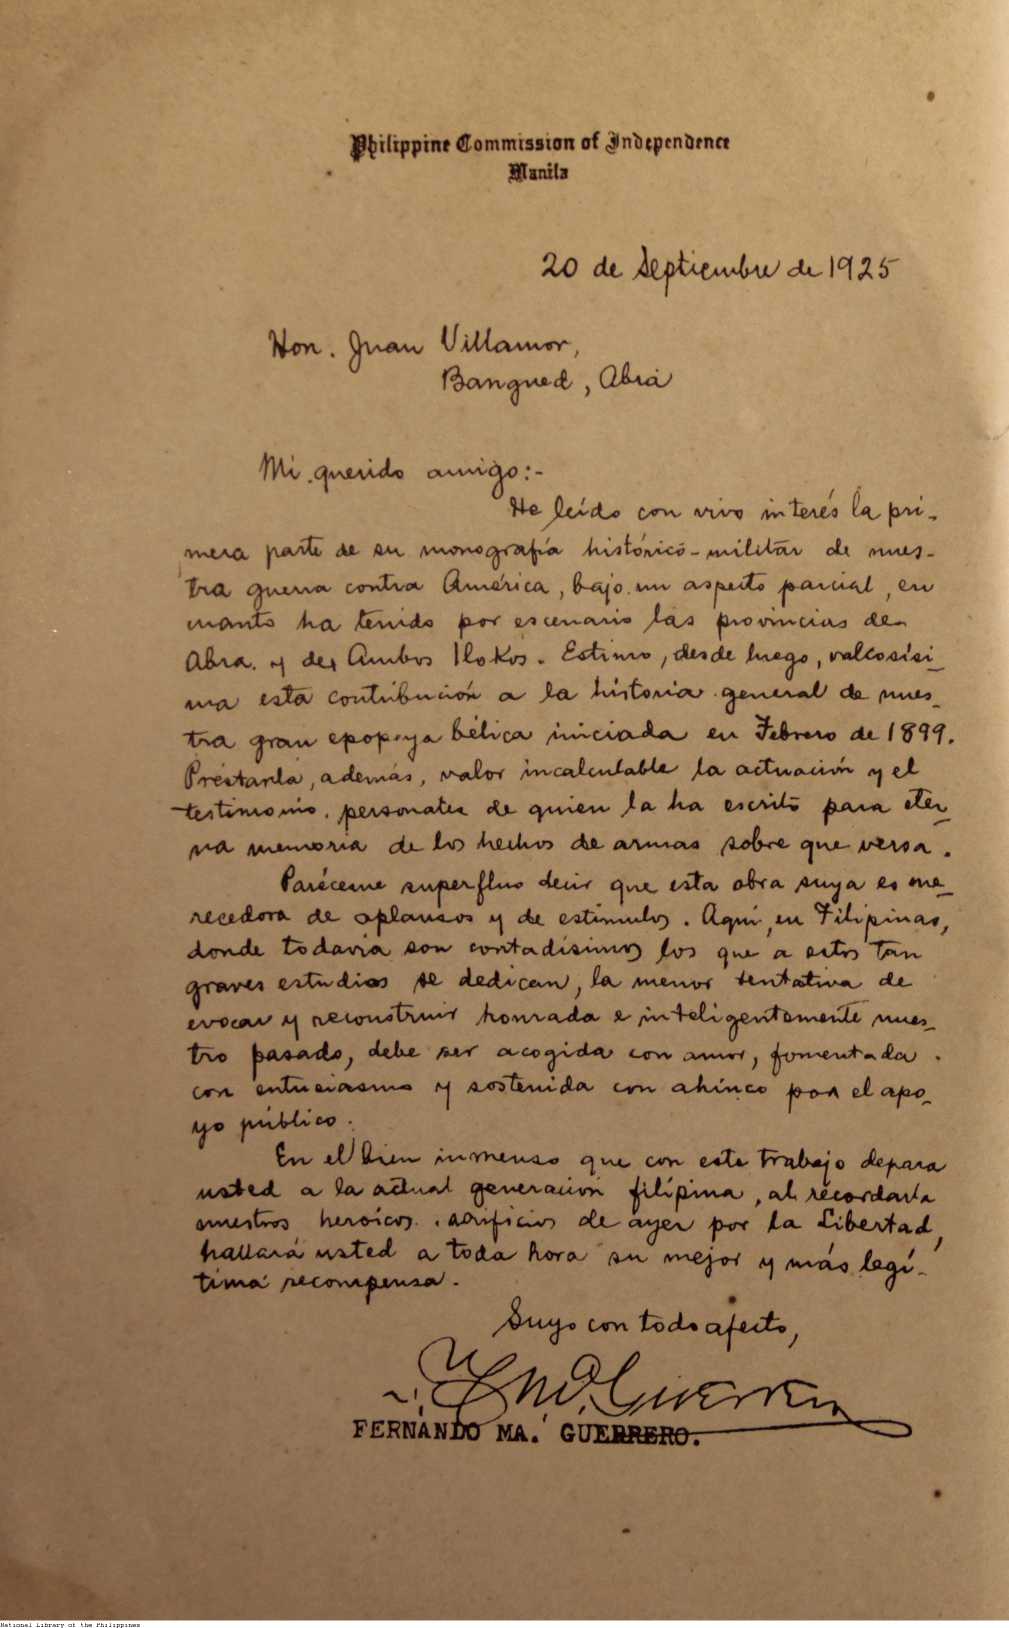 Philippine Commission of Independence
Manila
20 de Septiembre de 1925
Hon. Juan Villamor,
Bangued, Abra
Mi querido amigo:-
He leído con vivo interés la pri-
mera parte de su monografía histórico-militar de nues-
tra guerra contra América, bajo un aspecto parcial, en
cuanto ha tenido por escenario las provincias de
Abra y de Ambos Ilokos. Estimo, desde luego, valiosísi-
ma esta contribución a la historia general de nues-
tra gran epopeya bélica iniciada en Febrero de 1899.
Préstanla, además, valor incalculable la actuación y el
testimonio personales de quien la ha escrito para eter-
na memoria de los hechos de armas sobre que versa.
Paréceme superfluo decir que esta obra suya es me-
recedora de aplausos y de estímulos. Aquí, en Filipinas,
donde todavía son contadísimos los que a estos tan
graves estudios se dedican, la menor tentativa de
evocar y reconstruir honrada e inteligentemente nues-
tro pasado, debe ser acogida con amor, fomentada
con entusiasmo y sostenida con ahínco por el apo-
yo público.
En el bien inmenso que con este trabajo depara
usted a la actual generación filipina, al recordarla
nuestros heroicos sacrificios de ayer por la Libertad,
hallará usted a toda hora su mejor y más legí-
tima recompensa.
Suyo con todo afecto,
Fndo. Ma. Guerrero
FERNANDO MA. GUERRERO.
National Library of the Philippines